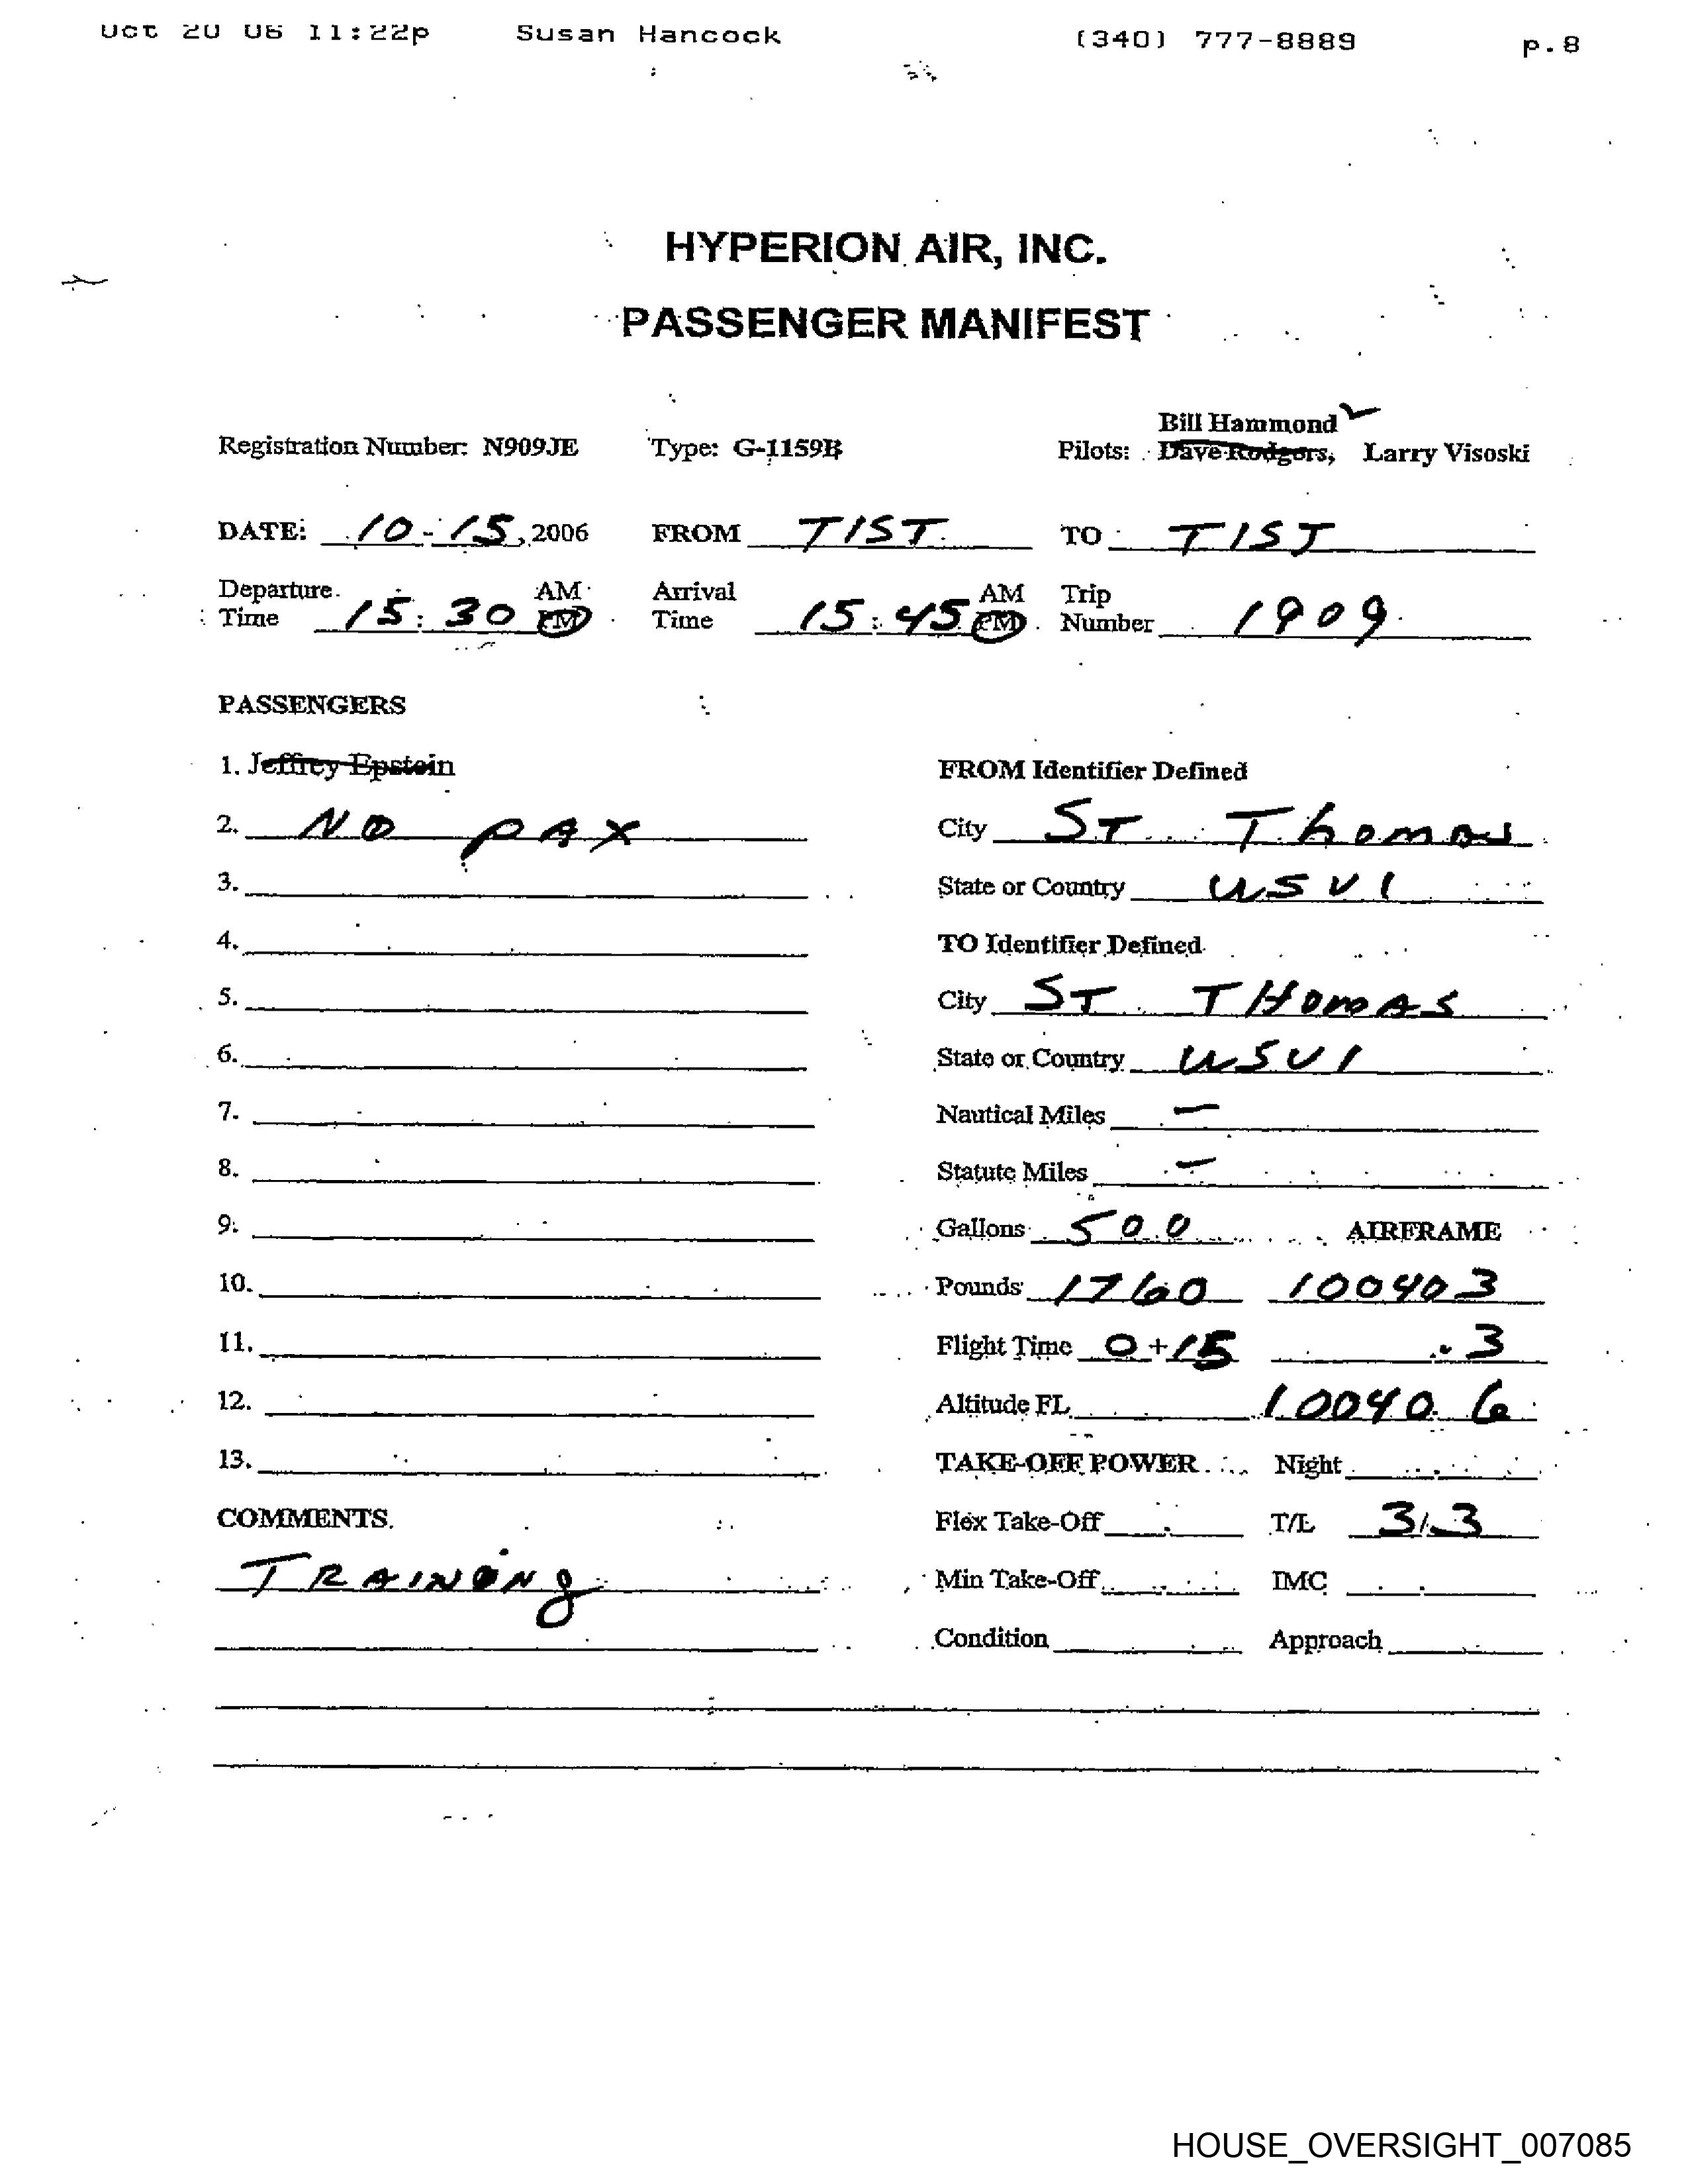 Oct 20 06 11:22p Susan Hancock (340) 777-8889 p.8
HYPERION AIR, INC.
PASSENGER MANIFEST
Bill Hammond
Registration Number: N909JE Type: G-1159B Pilots: Dave Rodgers, Larry Visoski
DATE: 10-15, 2006 FROM TIST TO TIST
Departure Time 15:30 AM PM Arrival Time 15:45 AM PM Trip Number 1909
PASSENGERS
1. Jeffrey Epstein
2. NO PAX
3.
4.
5.
6.
7.
8.
9.
10.
11.
12.
13.
COMMENTS.
TRAINING
FROM Identifier Defined
City ST Thomas
State or Country USVI
TO Identifier Defined
City ST THOMAS
State or Country USVI
Nautical Miles –
Statute Miles –
Gallons 500 AIRFRAME
Pounds 1760 10040 3
Flight Time 0+15 .3
Altitude FL 10040.6
TAKE-OFF POWER Night
Flex Take-Off T/L 3/3
Min Take-Off IMC
Condition Approach
HOUSE_OVERSIGHT_007085